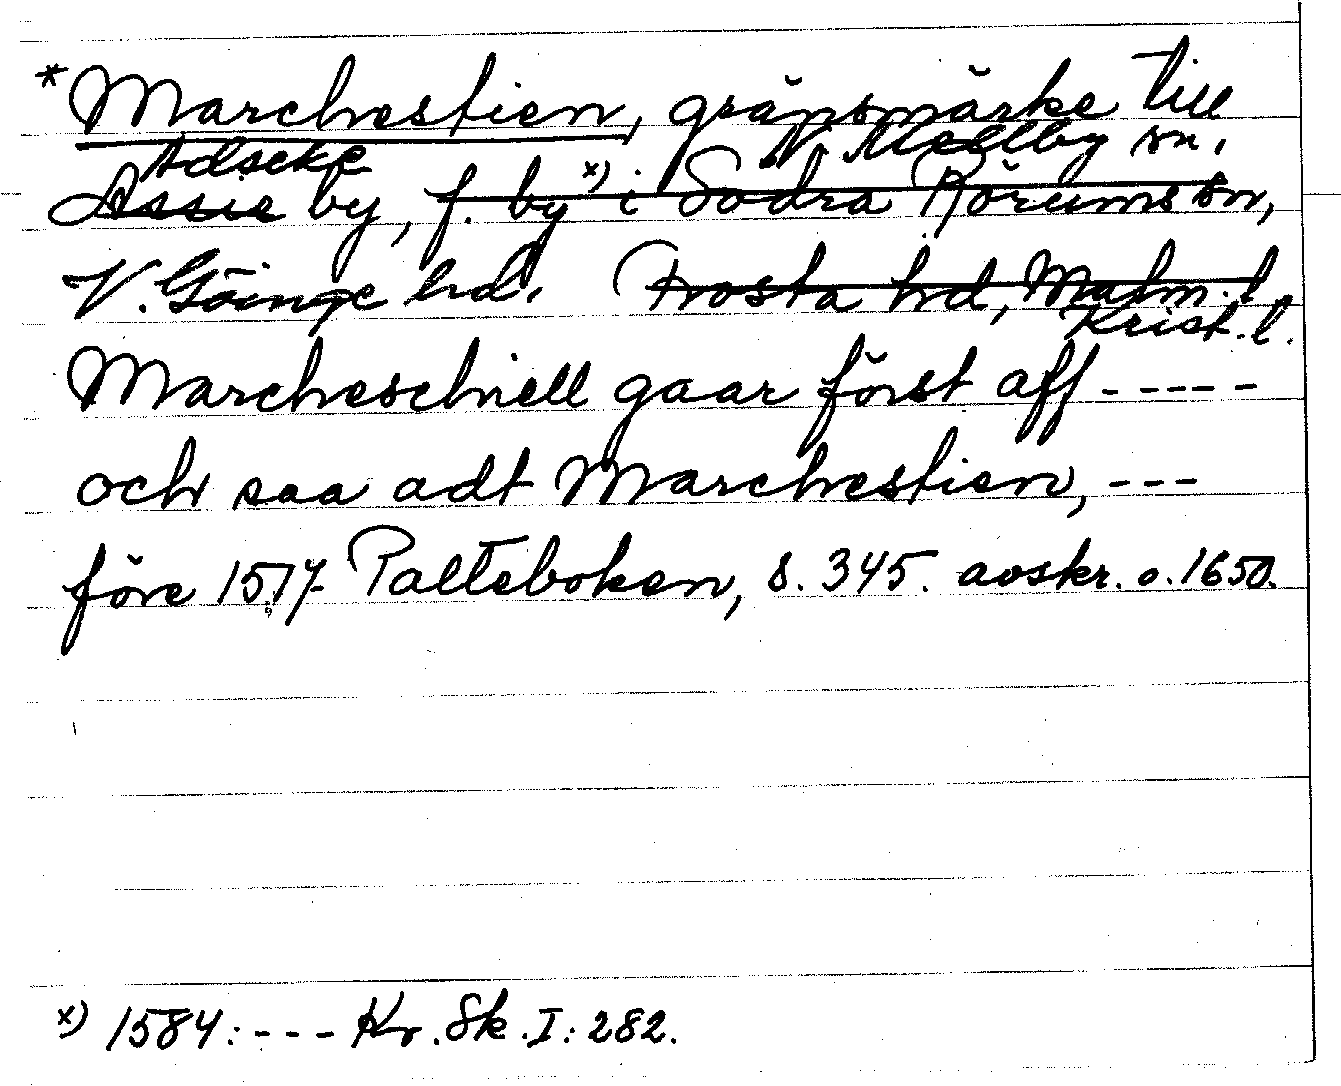 * Marchestien, gränsmärke till
Adseke N. Mellby sn.
Assie by, f. by x) i Södra Rörums sn,
V. Göinge hd. Frosta hd, Malm. l.
Krist. l.
Marcheschiell gaar först aff -----
och saa adt Marchestien, ---
före 1517 Palteboken, s. 345. avskr. o. 1650.
x) 1584: --- Kr. Sk. I: 282.